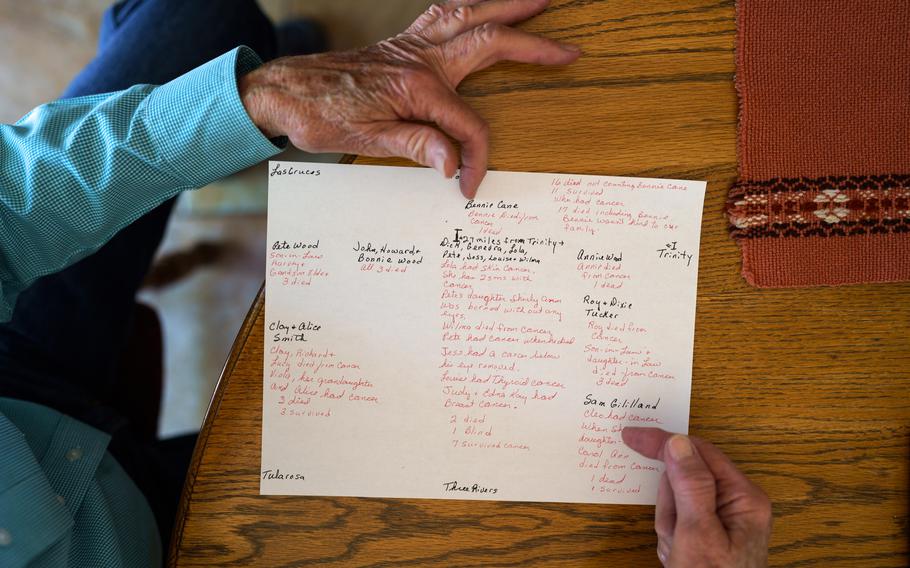 Las Cruces
16 died not counting Bennie Cane
11 survived
who had cancer
17 died including Bennie
Bennie wasn't kind to our
family.
Bennie Cane
Bennie Died from
cancer
1 dead
Pete Wood
Son-in-Law
Harvey +
Grandson Eldon
3 died
John, Howard +
Bonnie Wood
all 3 died
I ← 27 miles from Trinity →
Dick, Genedra, Lola,
Pete, Jess, Louise + Wilma
Lola had skin cancer.
She has 2 sons with
cancer
Pete's daughter Shirly Ann
was borned with out any
eyes.
Wilma died from cancer
Pete had cancer when he died
Jess had a cancer below
his eye removed.
Louise had Thyroid cancer
Judy + Edna Kay had
Breast Cancer.
2 died
1 Blind
7 survived cancer
← I
Trinity
Annie Wood
Annie died
from cancer
1 dead
Roy + Dixie
Tucker
Roy died from
Cancer
Son-in-Law +
daughter-in Law
died from cancer
3 dead
Clay + Alice
Smith
Clay, Richard +
Lucy died from cancer
Viola, her grandaughter
And Alice had cancer
3 died
3 survived
Sam Gililland
Cleo had cancer
When
daughter-
Carol Ann
died from cancer
1 dead
1 survived
Tularosa
Three Rivers